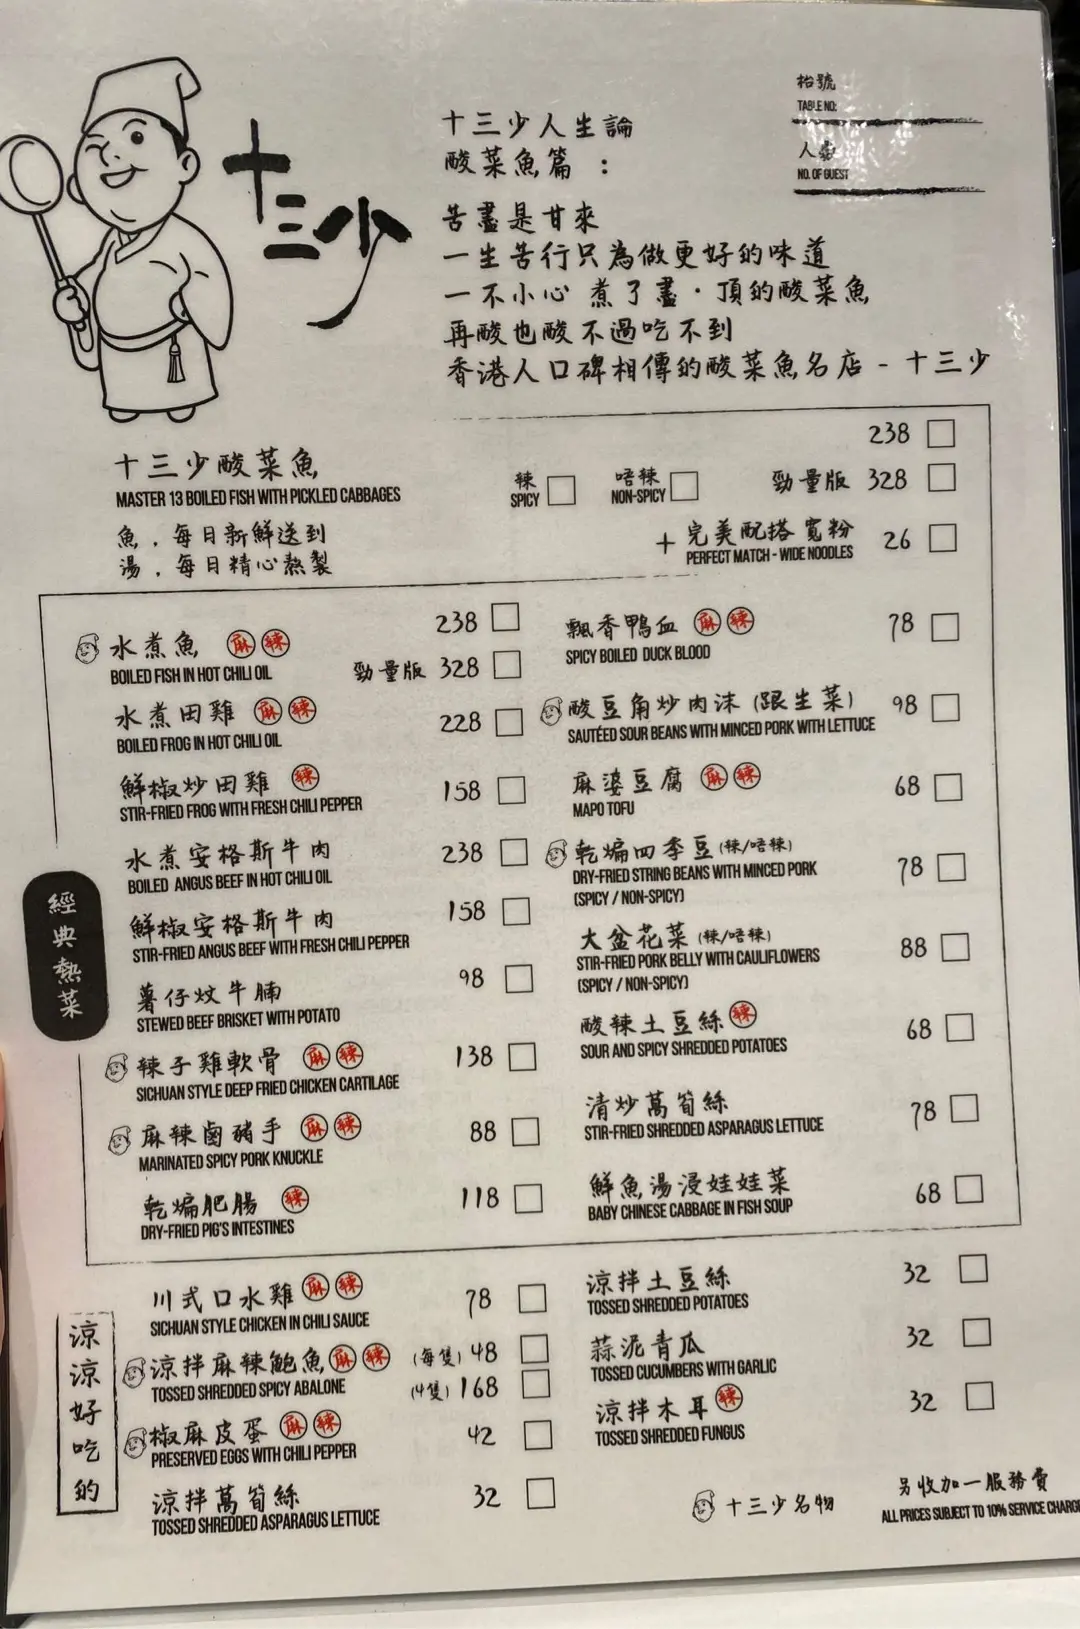 十三少
十三少人生論
酸菜魚篇：
苦盡是甘來
一生苦行只為做更好的味道
一不小心 煮了盡·頂的酸菜魚
再酸也酸不過吃不到
香港人口碑相傳的酸菜魚名店 - 十三少
枱號
TABLE NO:
人數
NO. OF GUEST
十三少酸菜魚
MASTER 13 BOILED FISH WITH PICKLED CABBAGES
魚，每日新鮮送到
湯，每日精心熬製
辣
SPICY
唔辣
NON-SPICY
238
勁量版 328
+ 完美配搭 寬粉 26
PERFECT MATCH - WIDE NOODLES
經典熱菜
水煮魚 麻 辣 238
BOILED FISH IN HOT CHILI OIL
勁量版 328
水煮田雞 麻 辣 228
BOILED FROG IN HOT CHILI OIL
鮮椒炒田雞 辣 158
STIR-FRIED FROG WITH FRESH CHILI PEPPER
水煮安格斯牛肉 238
BOILED ANGUS BEEF IN HOT CHILI OIL
鮮椒安格斯牛肉 158
STIR-FRIED ANGUS BEEF WITH FRESH CHILI PEPPER
薯仔炆牛腩 98
STEWED BEEF BRISKET WITH POTATO
辣子雞軟骨 麻 辣 138
SICHUAN STYLE DEEP FRIED CHICKEN CARTILAGE
麻辣鹵豬手 麻 辣 88
MARINATED SPICY PORK KNUCKLE
乾煸肥腸 辣 118
DRY-FRIED PIG'S INTESTINES
飄香鴨血 麻 辣 78
SPICY BOILED DUCK BLOOD
酸豆角炒肉沫 (跟生菜) 98
SAUTÉED SOUR BEANS WITH MINCED PORK WITH LETTUCE
麻婆豆腐 麻 辣 68
MAPO TOFU
乾煸四季豆 (辣/唔辣) 78
DRY-FRIED STRING BEANS WITH MINCED PORK
(SPICY / NON-SPICY)
大盆花菜 (辣/唔辣) 88
STIR-FRIED PORK BELLY WITH CAULIFLOWERS
(SPICY / NON-SPICY)
酸辣土豆絲 辣 68
SOUR AND SPICY SHREDDED POTATOES
清炒萵筍絲 78
STIR-FRIED SHREDDED ASPARAGUS LETTUCE
鮮魚湯浸娃娃菜 68
BABY CHINESE CABBAGE IN FISH SOUP
涼涼好吃的
川式口水雞 麻 辣 78
SICHUAN STYLE CHICKEN IN CHILI SAUCE
涼拌麻辣鮑魚 麻 辣 (每隻) 48
TOSSED SHREDDED SPICY ABALONE
(4隻) 168
椒麻皮蛋 麻 辣 42
PRESERVED EGGS WITH CHILI PEPPER
涼拌萵筍絲 32
TOSSED SHREDDED ASPARAGUS LETTUCE
涼拌土豆絲 32
TOSSED SHREDDED POTATOES
蒜泥青瓜 32
TOSSED CUCUMBERS WITH GARLIC
涼拌木耳 辣 32
TOSSED SHREDDED FUNGUS
十三少名物
另收加一服務費
ALL PRICES SUBJECT TO 10% SERVICE CHARGE